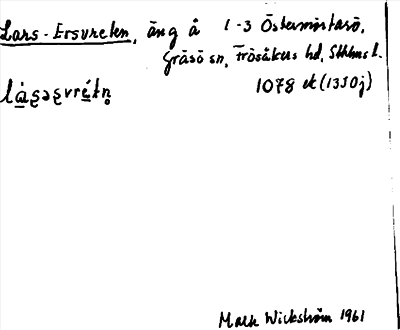 Lars-Ersvreten, äng å 1-3 Östermörtarö,
Gräsö sn, Frösåkers hd, Sthlms l.
1078 ek (13S0j)
Mats Wickström 1961